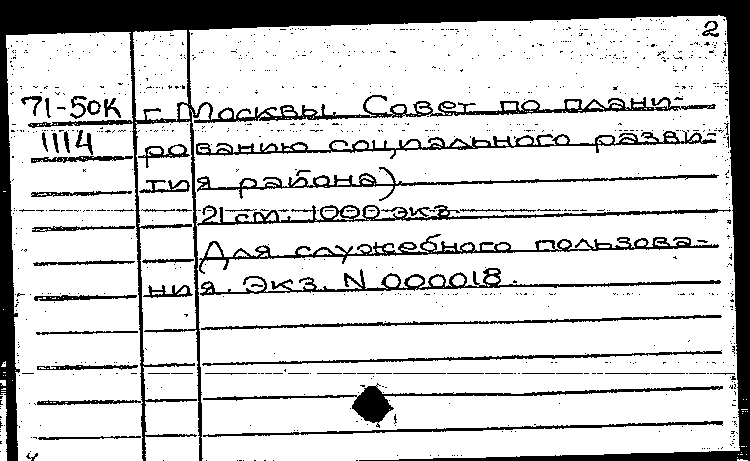 2
71-50к г Москвы. Совет по плани-
1114 рованию социального разви-
тия района)
21 см. 1000 экз.
Для служебного пользова-
ния. Экз. N 000018.